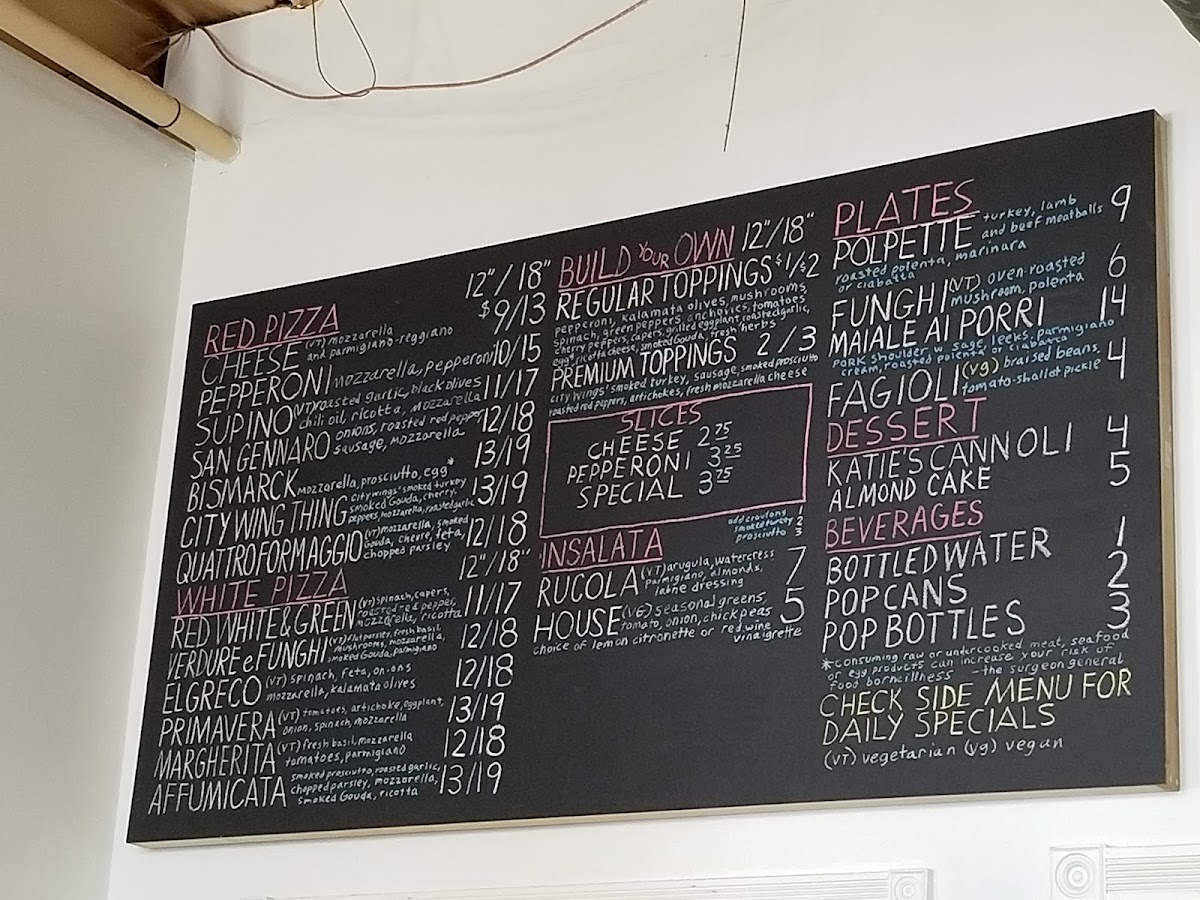 12"/18"
RED PIZZA $9/13
CHEESE (VT) mozzarella and parmigiano-reggiano
PEPPERONI mozzarella, pepperoni 10/15
SUPINO (VT) roasted garlic, black olives 11/17
chili oil, ricotta, mozzarella
SAN GENNARO onions, roasted red pepper 12/18
sausage, mozzarella
BISMARCK mozzarella, prosciutto, egg* 13/19
CITY WING THING city wings' smoked turkey 13/19
smoked Gouda, cherry
peppers, mozzarella, roasted garlic
QUATTRO FORMAGGIO (VT) mozzarella, smoked 12/18
Gouda, chevre, feta,
chopped parsley
WHITE PIZZA 12"/18"
RED WHITE & GREEN (VT) spinach, capers, 11/17
roasted red pepper,
mozzarella, ricotta
VERDURE e FUNGHI (VT) flat parsley, fresh basil, 12/18
mushrooms, mozzarella,
smoked Gouda, parmigiano
EL GRECO (VT) spinach, feta, onions 12/18
mozzarella, kalamata olives
PRIMAVERA (VT) tomatoes, artichoke, eggplant, 13/19
onion, spinach, mozzarella
MARGHERITA (VT) fresh basil, mozzarella 12/18
tomatoes, parmigiano
AFFUMICATA smoked prosciutto, roasted garlic, 13/19
chopped parsley, mozzarella,
smoked Gouda, ricotta
BUILD YOUR OWN 12"/18"
REGULAR TOPPINGS $1/$2
pepperoni, kalamata olives, mushrooms,
spinach, green peppers, anchovies, tomatoes
cherry peppers, capers, grilled eggplant, roasted garlic,
egg* ricotta cheese, smoked Gouda, fresh herbs
PREMIUM TOPPINGS 2/3
city wings' smoked turkey, sausage, smoked prosciutto
roasted red peppers, artichokes, fresh mozzarella cheese
SLICES
CHEESE 2 75
PEPPERONI 3 25
SPECIAL 3 75
add croutons 1
smoked turkey 2
prosciutto 3
INSALATA
RUCOLA (VT) arugula, watercress 7
Parmigiano, almonds,
labne dressing
HOUSE (VG) seasonal greens, 5
tomato, onion, chick peas
choice of lemon citronette or red wine
vinaigrette
PLATES
POLPETTE turkey, lamb 9
and beef meatballs
roasted polenta, marinara
or ciabatta
FUNGHI (VT) oven-roasted 6
mushroom, polenta
MAIALE AI PORRI 14
PORK shoulder w. sage, leeks, parmigiano
cream, roasted polenta or ciabatta
FAGIOLI (vg) braised beans, 4
tomato-shallot pickle
DESSERT
KATIE'S CANNOLI 4
ALMOND CAKE 5
BEVERAGES
BOTTLED WATER 1
POP CANS 2
POP BOTTLES 3
*consuming raw or undercooked meat, seafood
or egg products can increase your risk of
food borneillness -the surgeon general
CHECK SIDE MENU FOR
DAILY SPECIALS
(VT) vegetarian (vg) vegan